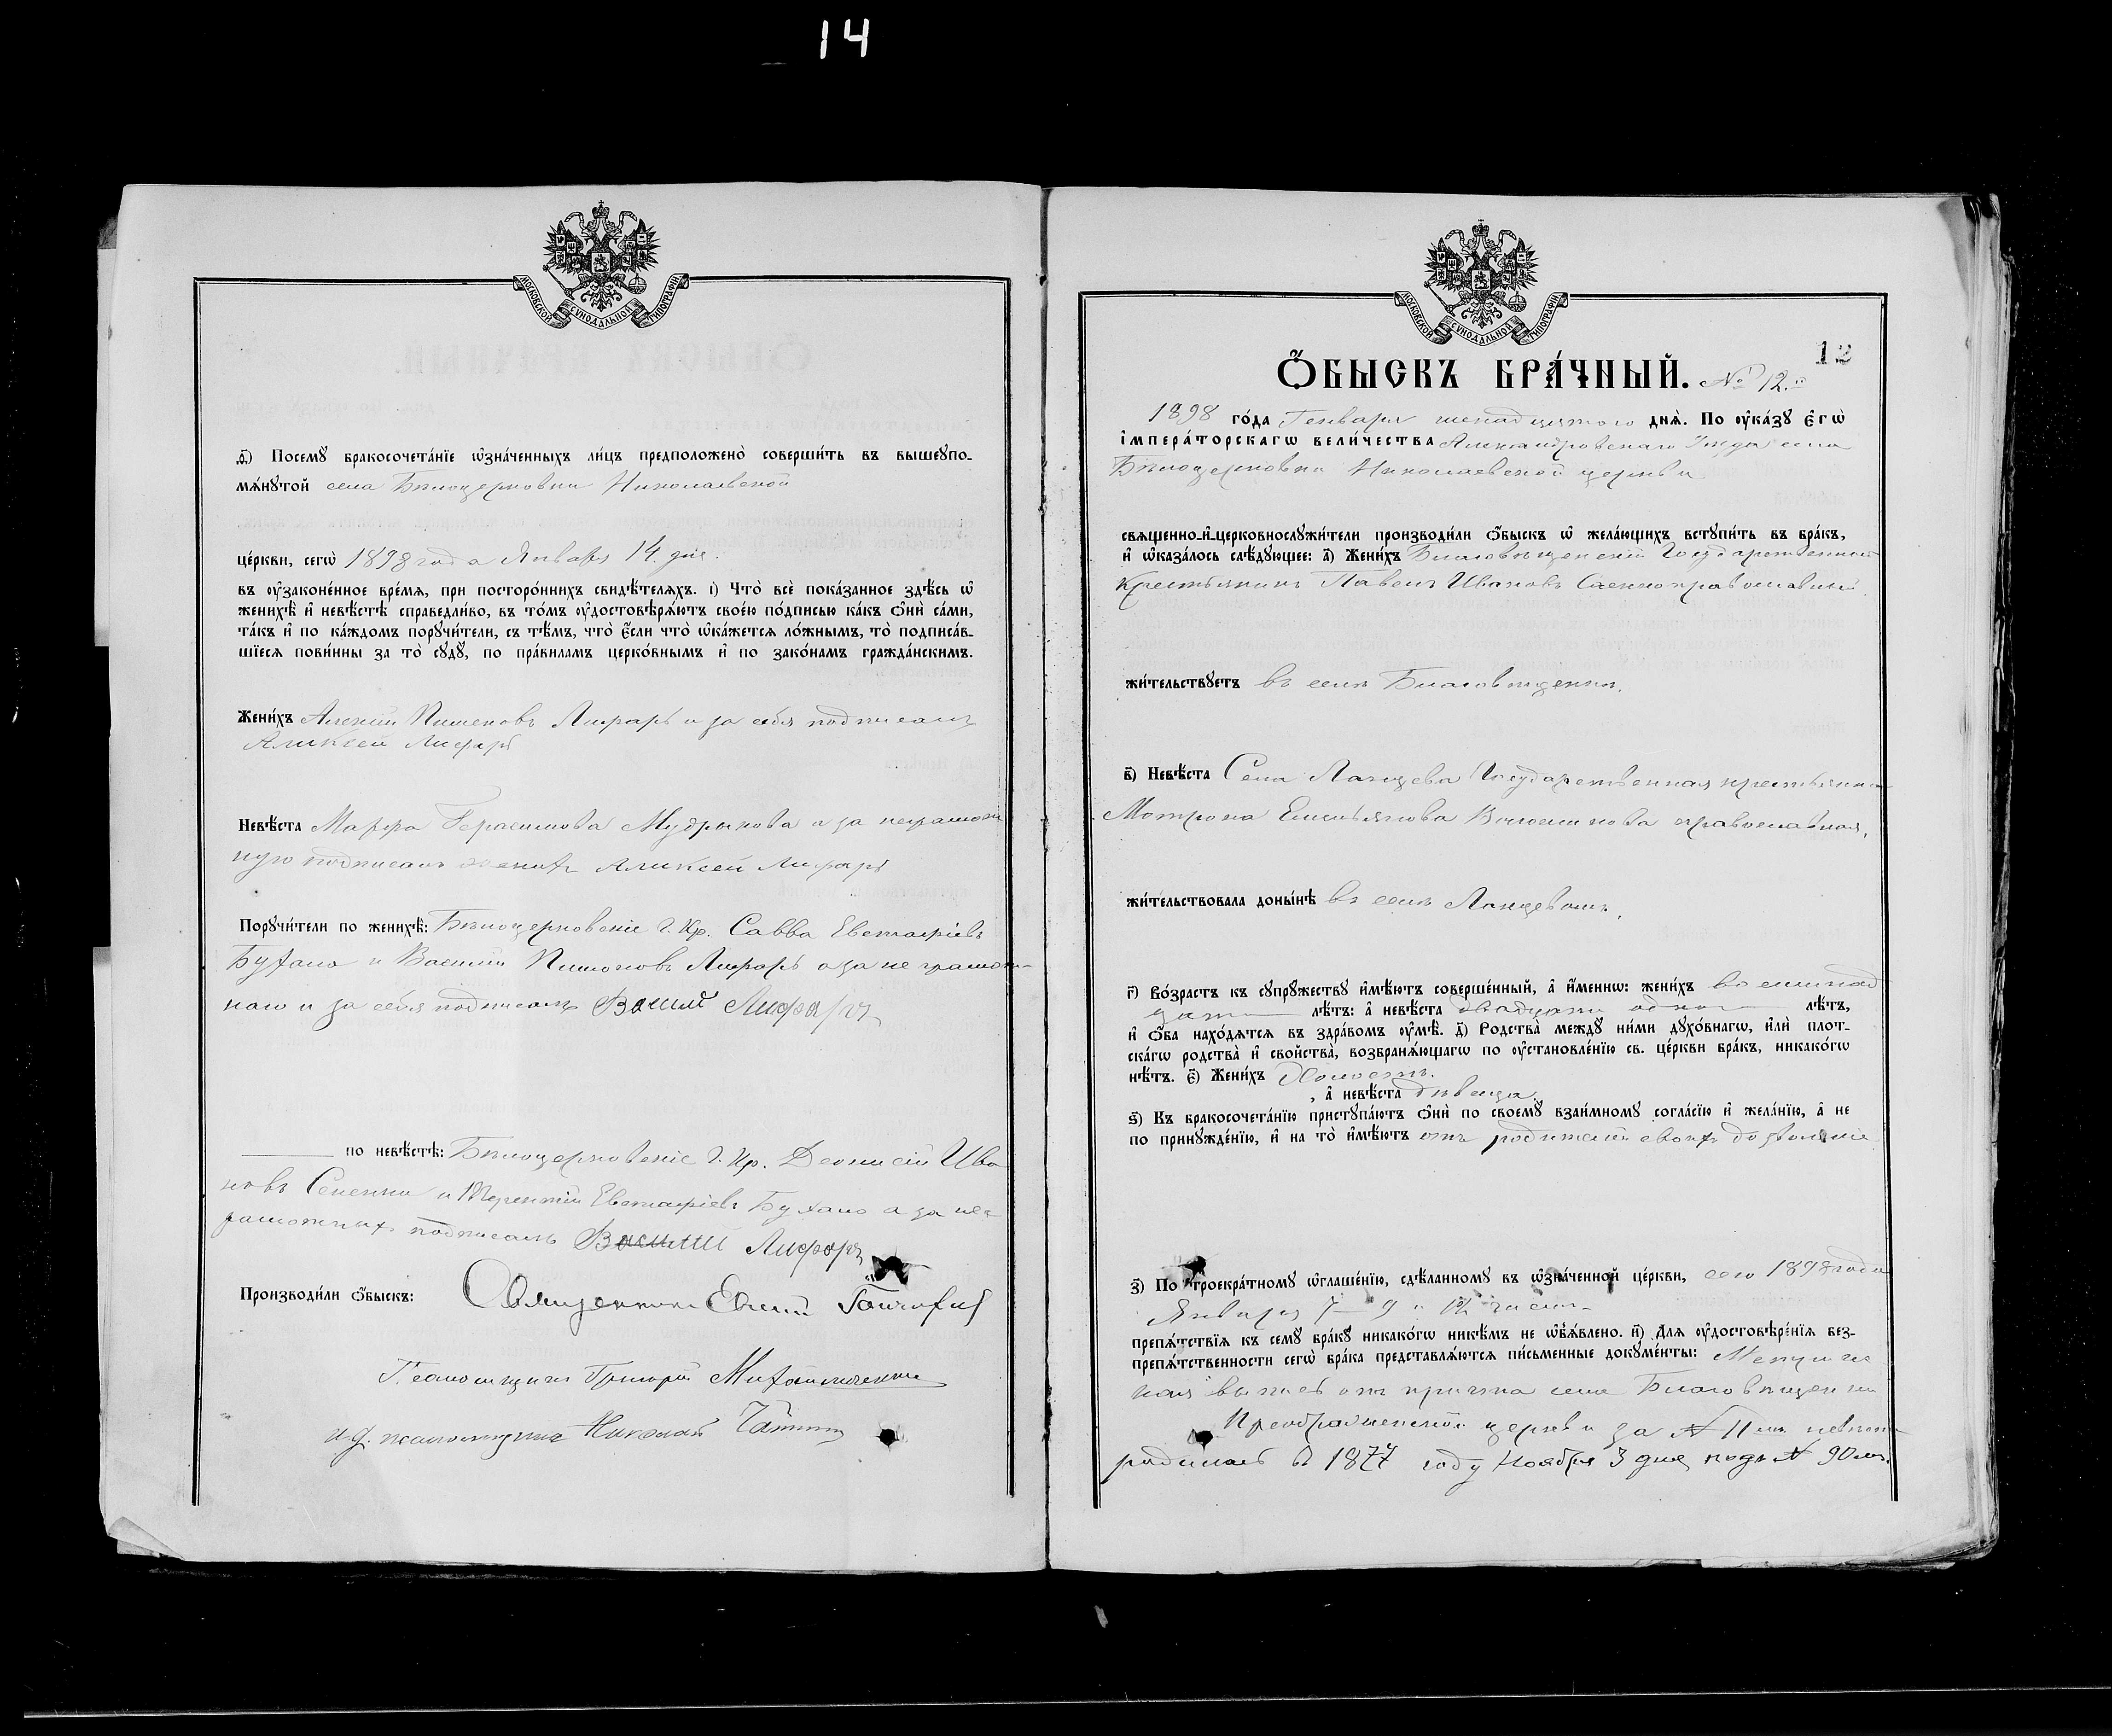 14
МОСКОВСКОЙ СѴНОДАЛЬНОЙ ТИПОГРАФІИ.
ѳ҃) Посемꙋ̀ бракосочета́нїе ѡ҆зна́ченныхъ ли́цъ предположено̀ соверши́ть въ вышеꙋпо-
мѧ́нꙋтой села Бѣлоцерковки Николаевской
це́ркви, сегѡ̀ 1898 года Января 14 дня.
въ ᲂу҆зако́ненное вре́мѧ, при посторо́ннихъ свидѣ́телѧхъ. і) Что̀ всѐ пока́занное здѣ́сь ѡ҆
женихѣ̀ и҆ невѣ́стѣ справедли́во, въ то́мъ ᲂу҆достовѣрѧ́ютъ свое́ю по́дписью ка́къ ѻ҆нѝ са́ми,
та́къ и҆ по ка́ждомъ порꙋчи́тели, съ тѣ́мъ, что̀ є҆́сли что̀ ѡ҆ка́жетсѧ ло́жнымъ, то̀ подписа́в-
шїесѧ пови́нны за то̀ сꙋдꙋ̀, по пра́виламъ церко́внымъ и҆ по зако́намъ гражда́нскимъ.
Жени́хъ Алексій Пименовъ Лифарь и за себя подписалъ
Алексей Лифарь
Невѣ́ста Марфа Герасимова Мудрикова а за неграмот
ную подписалъ женихъ Алексей Лифарь
Порꙋчи́тели по женихѣ̀: Бѣлоцерковскіе Г. Кр. Савва Евстафіевъ
Бухало и Василій Пименовъ Лифарь а за не грамот-
наго и за себя подписалъ Василий Лифарь
по невѣ́стѣ: Бѣлоцерковскіе Г. Кр. Деонисій Ива
новъ Сененко и Терентій Евстафіевъ Бухало а за нег
рамотныхъ подписалъ Василий Лифарь
Производи́ли ѻ҆́быскъ: Священникъ
Псаломщикъ Григорій Михайличенко
и. д. псаломщика Николай
МОСКОВСКОЙ СѴНОДАЛЬНОЙ ТИПОГРАФІИ.
12
Ѻ҆́БЫСКЪ БРА́ЧНЫЙ. № 12.й
1898 го́да Генваря дня̀. По ᲂу҆ка́зꙋ Є҆гѡ̀
і҆мпера́торскагѡ вели́чества Александровскаго Уѣзда села
Бѣлоцерковки Николаевской церкви
свѧщенно-и҆-церковнослꙋжи́тели производи́ли ѻ҆́быскъ ѡ҆ жела́ющихъ встꙋпи́ть въ бра́къ,
и҆ ѡ҆каза́лось слѣ́дꙋющее: а҃) Жени́хъ Благовѣщенскій Государственный
Крестьянинъ Павелъ Ивановъ православный.
жи́тельствꙋетъ въ селѣ Благовѣщенкѣ.
в҃) Невѣ́ста Села Ланцева Государственная крестьянка
Матрона Емельянова православная.
жи́тельствовала доны́нѣ въ селѣ Ланцевомъ.
г҃) Во́зрастъ къ сꙋпрꙋ́жествꙋ и҆мѣ́ютъ соверше́нный, а҆ и҆́меннѡ: жени́хъ восемнад
цати лѣ́тъ: а҆ невѣ́ста двадцати одного лѣ́тъ,
и҆ ѻ҆́ба нахо́дѧтсѧ въ здра́вомъ ᲂу҆мѣ̀. д҃) Родства̀ междꙋ̀ ни́ми дꙋхо́внагѡ, и҆лѝ пло́т-
скагѡ родства̀ и҆ свойства̀, возбранѧ́ющагѡ по ᲂу҆становле́нїю св. це́ркви бра́къ, никако́гѡ
нѣ́тъ. є҃) Жени́хъ Холостъ.
, а҆ невѣ́ста дѣвица.
ѕ҃) Къ бракосочета́нїю пристꙋпа́ютъ ѻ҆нѝ по своемꙋ̀ взаи́мномꙋ согла́сїю и҆ жела́нїю, а҆ не
по принꙋжде́нїю, и҆ на то̀ и҆мѣ́ютъ отъ родителей своихъ дозволеніе
з҃) По троекра́тномꙋ ѡ҆глаше́нїю, сдѣ́ланномꙋ въ ѡ҆зна́ченной це́ркви, сего 1898 года
Января 7 – 9 и 12 числъ
препѧ́тствїѧ къ семꙋ̀ бра́кꙋ никако́гѡ никѣ́мъ не ѡ҆б̾ѧ́влено. и҃) Для ᲂу҆достовѣре́нїѧ без-
препѧ́тственности сегѡ̀ бра́ка представлѧ́ютсѧ пи́сьменные докꙋме́нты: Метриче
ская выпись отъ причта села Благовѣщенки
Преображенской церкви за № 11мъ
родилась въ 1877 году Ноября 3 дня подъ № 90мъ.